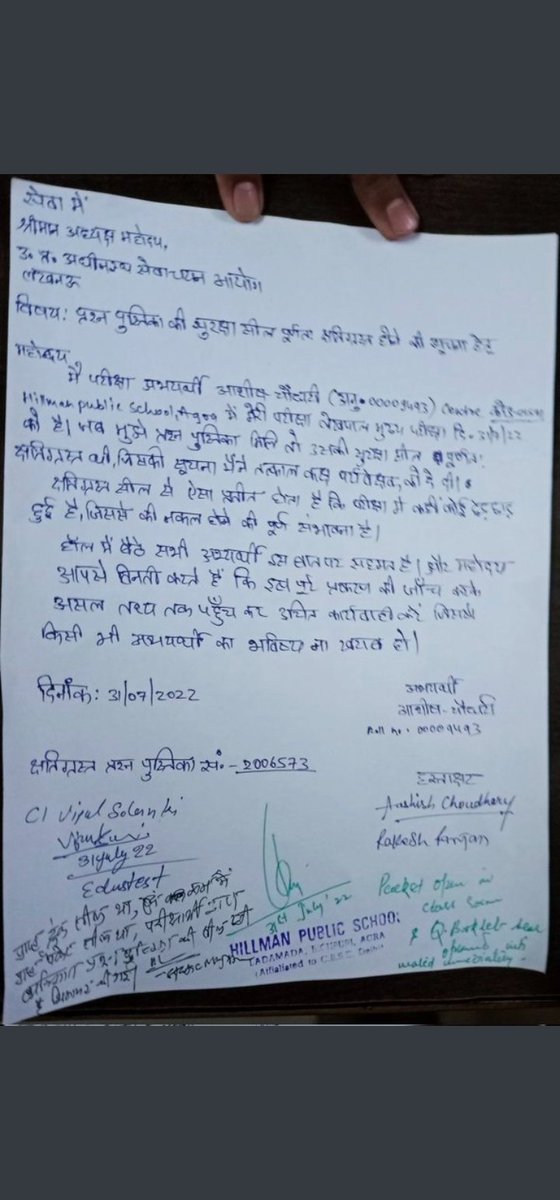 सेवा में
श्रीमान अध्यक्ष महोदय,
उ० प्र० अधीनस्थ सेवा चयन आयोग
लखनऊ
विषय: प्रश्न पुस्तिका की सुरक्षा सील पूर्णतः क्षतिग्रस्त होने की सूचना हेतु
महोदय,
मैं परीक्षा अभ्यर्थी आशीष चौधरी (अनु० 00009493) Centre
Hillman public school, Agra में मेरी परीक्षा लेखपाल मुख्य परीक्षा दि. 31/7/22
को है। जब मुझे प्रश्न पुस्तिका मिली तो उसकी सुरक्षा सील पूर्णतः
क्षतिग्रस्त थी, जिसकी सूचना मैंने तत्काल कक्ष पर्यवेक्षक को दे दी।
क्षतिग्रस्त सील से ऐसा प्रतीत होता है कि परीक्षा में कहीं कोई छेड़छाड़
हुई है, जिससे की नकल होने की पूर्ण संभावना है।
हॉल में बैठे सभी अभ्यर्थी इस बात पर सहमत है। और महोदय
आपसे विनती करते हैं कि इस पूरे प्रकरण की जाँच करके
असल तथ्य तक पहुँच कर उचित कार्यवाही करें जिससे
किसी भी अभ्यर्थी का भविष्य ना खराब हो।
दिनाँक: 31/07/2022
अभ्यर्थी
आशीष चौधरी
Roll no: 00009493
क्षतिग्रस्त प्रश्न पुस्तिका सं:- 2006573
हस्ताक्षर
Aashish Choudhary
Rakesh
CI Vipul Solanki
31 July 22
Edutest
31st July' 22
Packet open in
class room
& Q. Booklet
HILLMAN PUBLIC SCHOOL
TADAMADA, BICHPURI, AGRA
(Affiliated to C.B.S.E. Delhi)